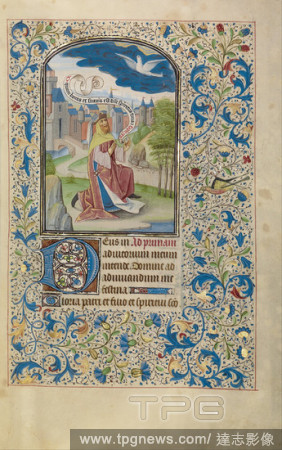 Eus in Ad primam
adiutorium meum
intende. Domine ad
adiuuandum me
festina
Gloria patri et filio et spiritui sco
TPG
www.tpgnews.com/ 達志影像